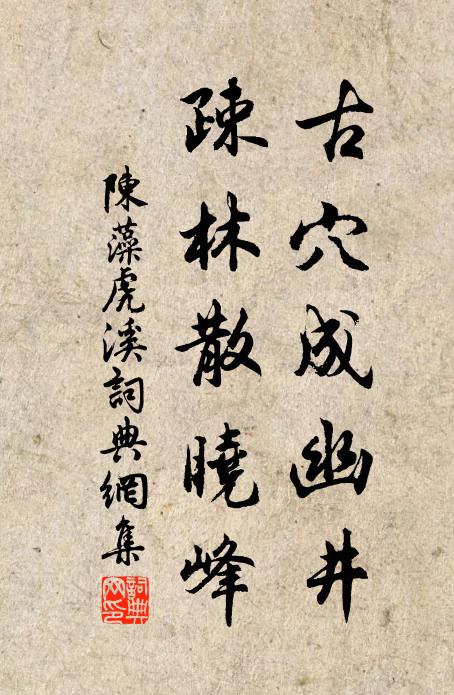 古穴成幽井
疎林散曉峰
陳藻虎溪詞典網集
詞典网印